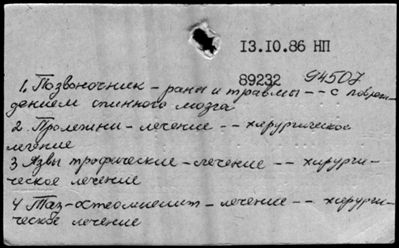 13.10.86 НП
89232 94507
1. Позвоночник - раны и травмы -- с повреж-
дением спинного мозга
2. Пролежни - лечение -- хирургическое
лечение
3 Язвы трофические - лечение -- хирурги-
ческое лечение
4 Таз - остеомиелит - лечение -- хирурги-
ческое лечение